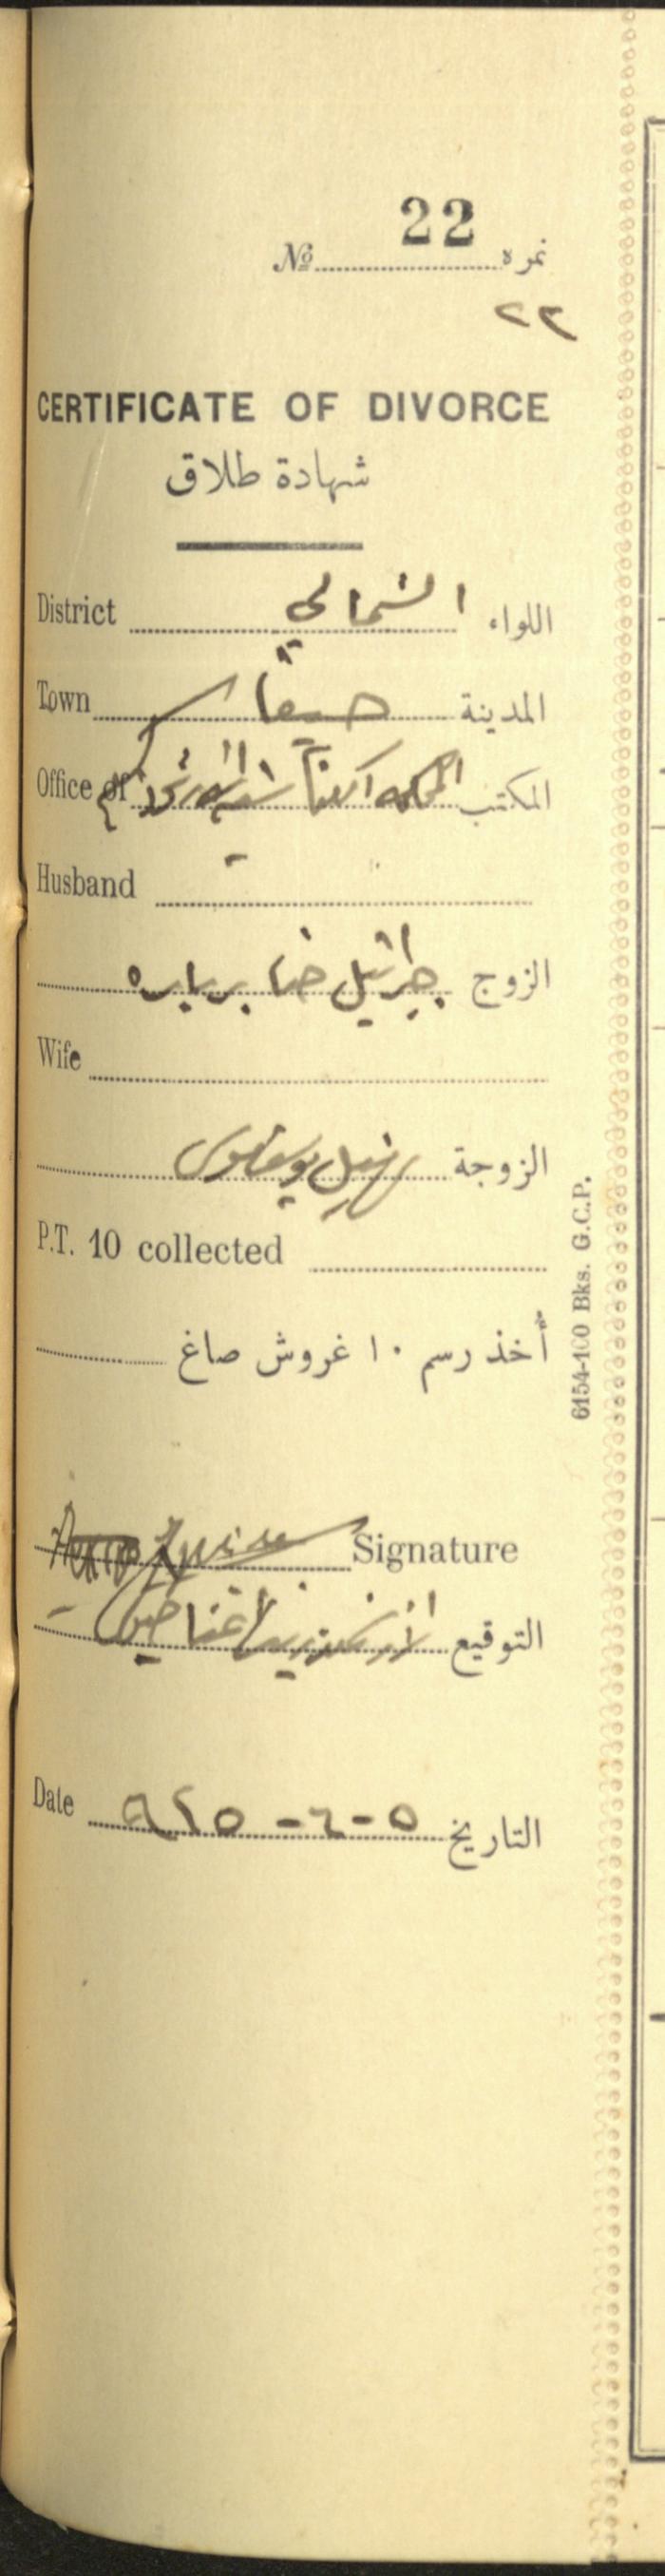 № 22 نمره
٢٢
CERTIFICATE OF DIVORCE
شهادة طلاق
District الشمالي اللواء
Town حيفا المدينة
Office of المحكمه المكتب
Husband
الزوج جبرائيل حنا برباره
Wife
الزوجة
P.T. 10 collected
أخذ رسم ١٠ غروش صاغ
Signature
التوقيع
Date ٥-٦-٩٢٥ التاريخ
6154-100 Bks. G.C.P.